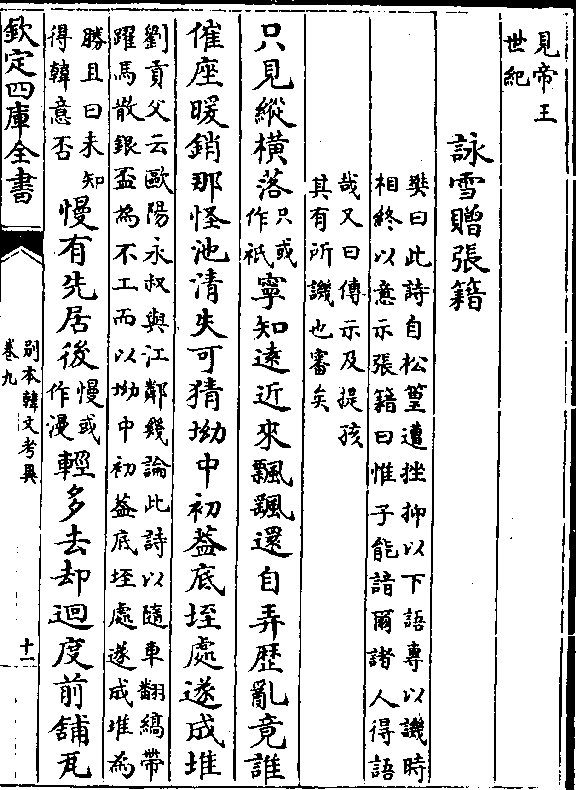 見帝王
世紀
詠雪贈張籍
樊曰此詩自松篁遭挫抑以下語専以譏時
相終以意示張籍曰惟子能諳爾諸人得語
哉又曰傳示及提孩
其有所譏也審矣
只見縱横落只或作祇寧知逺近來飄飄還自弄歴亂竟誰
催座暖銷那怪池清失可猜坳中初葢底垤處遂成堆
劉貢父云歐陽永叔與江鄰幾論此詩以隨車翻縞帶
躍馬散銀盃為不工而以坳中初葢底垤處遂成堆為
勝且曰未知
得韓意否
慢有先居後慢或作漫輕多去却迴度前鋪瓦
欽定四庫全書
别本韓文考異
卷九
十一